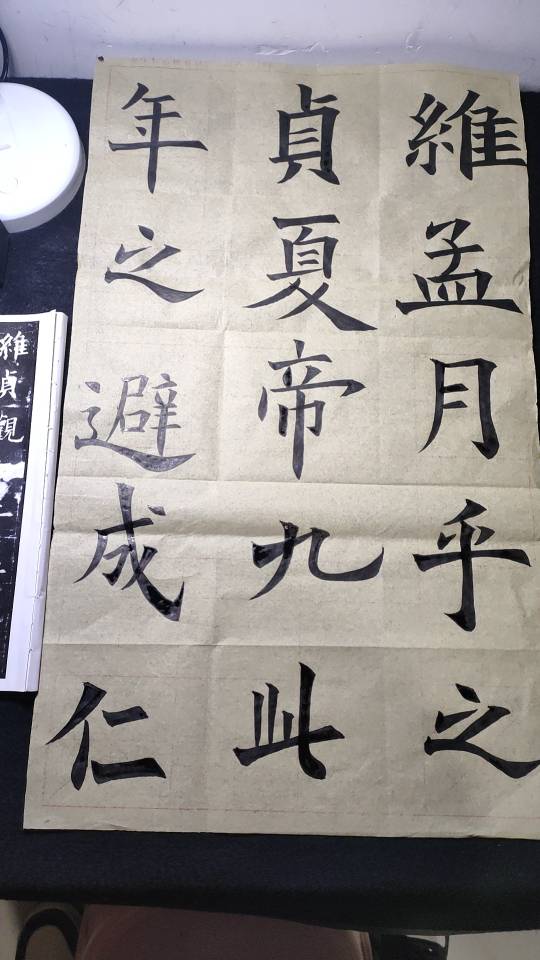 維貞年
孟夏之
月帝避
乎九成
之此仁
維貞觀